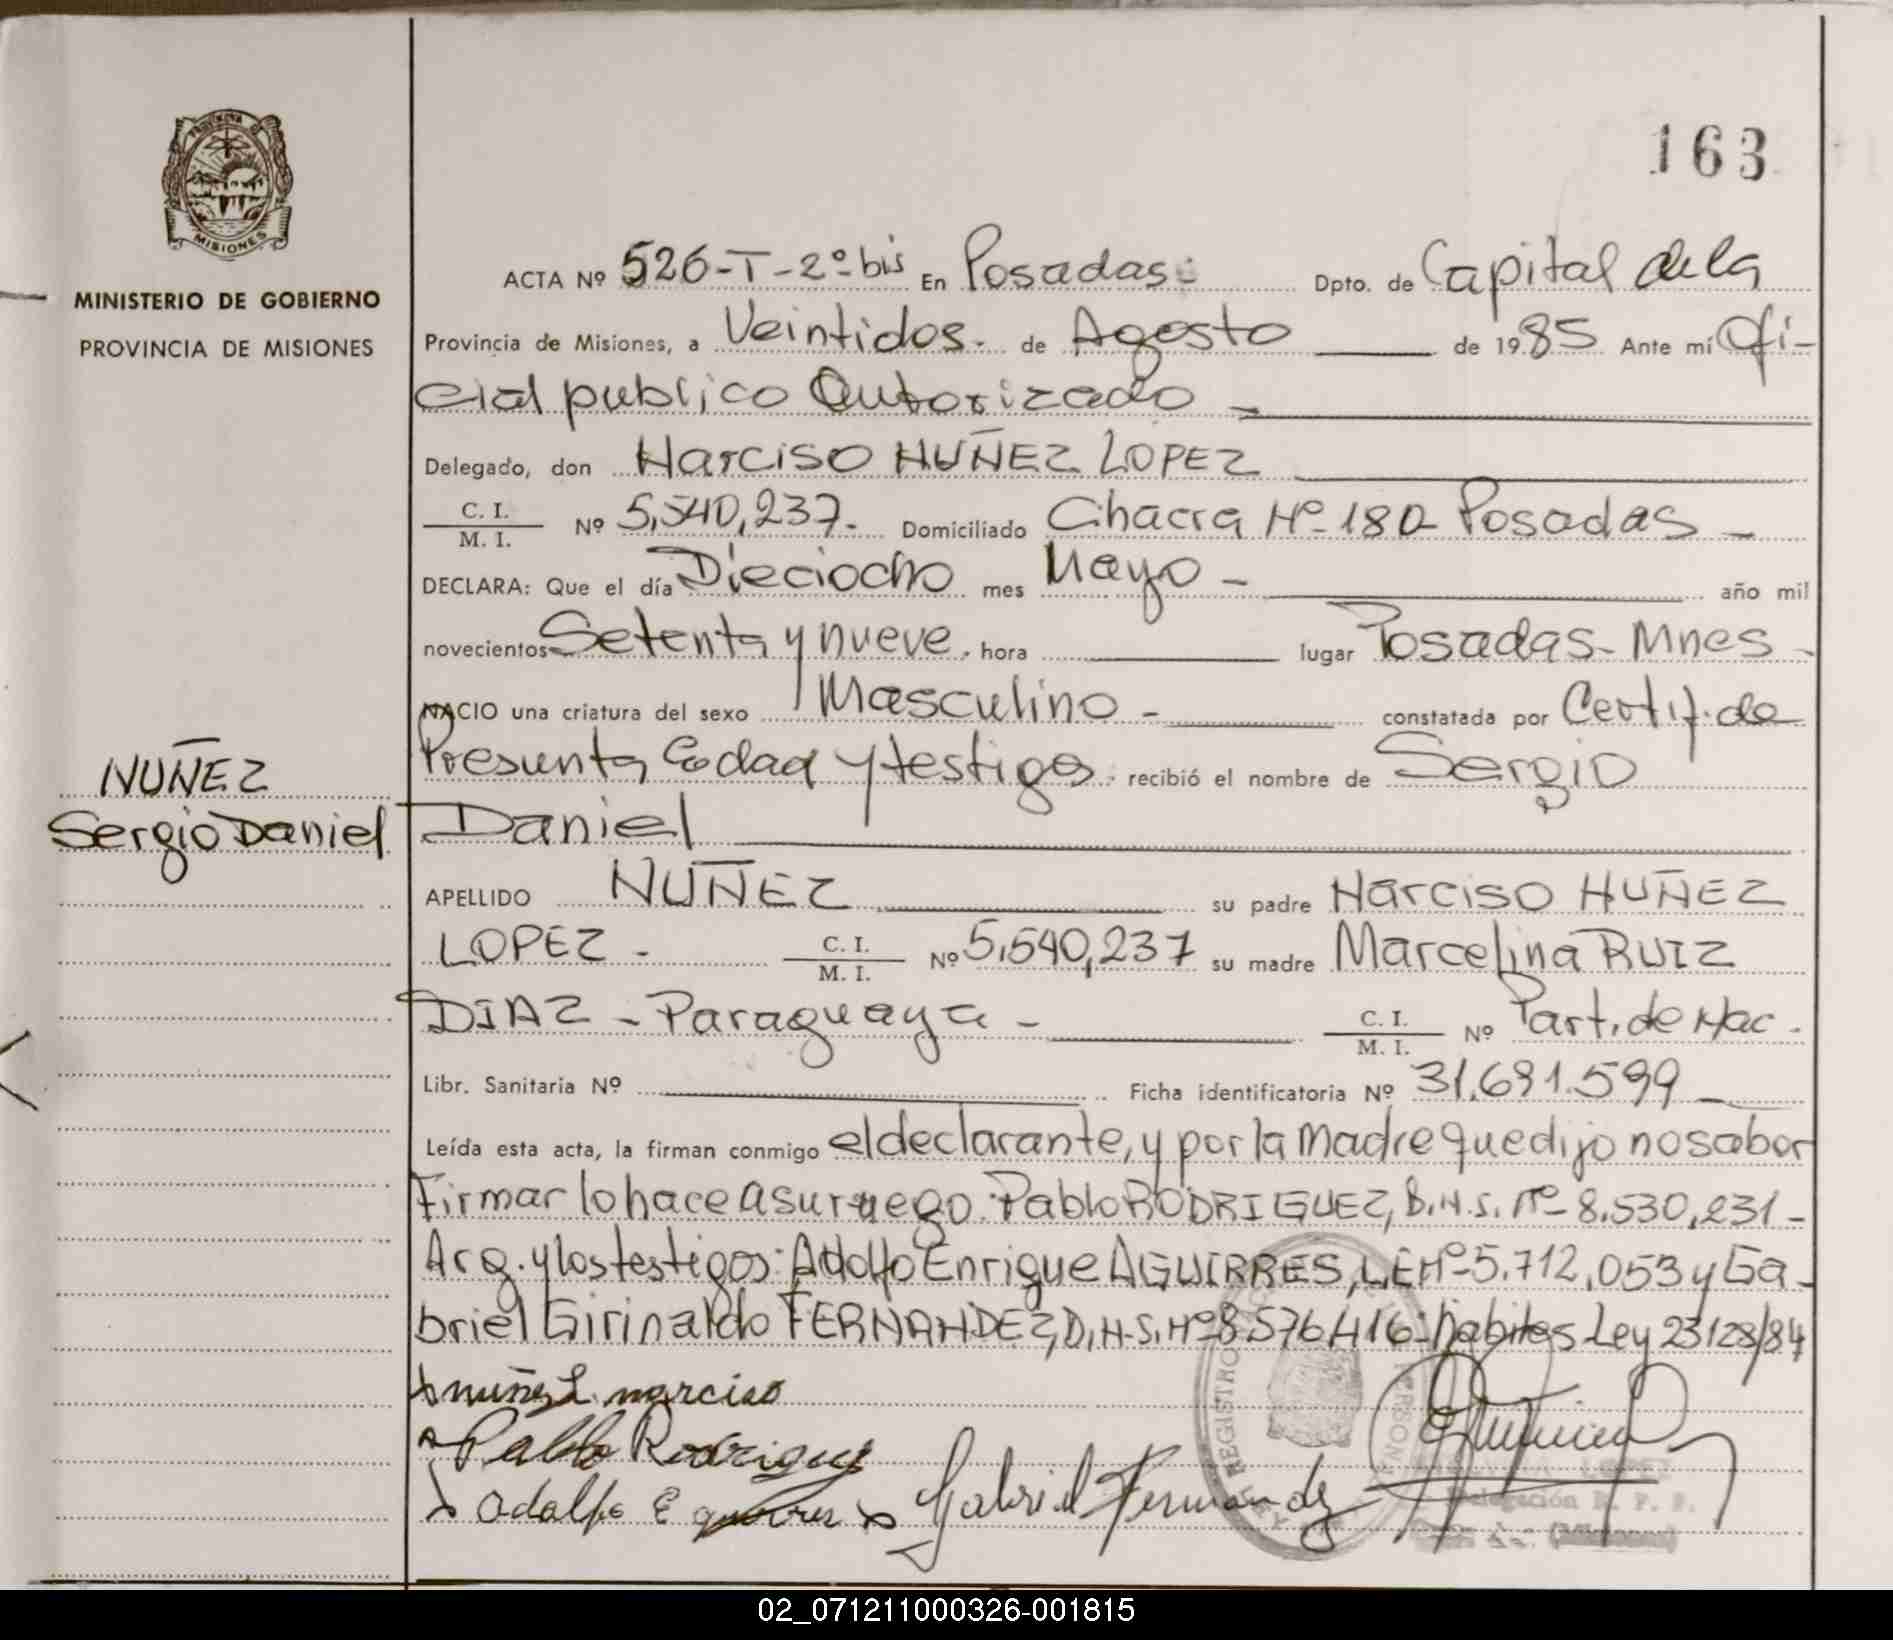 163
PROVINCIA DE
MISIONES
MINISTERIO DE GOBIERNO
PROVINCIA DE MISIONES
ACTA Nº 526-T-2º bis En Posadas: Dpto. de Capital de la
Provincia de Misiones, a Veintidos. de Agosto de 1985 Ante mí Ofi-
cial publico Autorizado -
Delegado, don Narciso NUÑEZ LOPEZ
C. I. / M. I. Nº 5,540,237.- Domiciliado Chacra Nº 180 Posadas -
DECLARA: Que el día Dieciocho mes Mayo - año mil
novecientos Setenta y nueve. hora lugar Posadas- Mnes -
NACIO una criatura del sexo Masculino - constatada por Certif. de
Presunta Eodad y testigos. recibió el nombre de Sergio
Daniel
NUÑEZ
Sergio Daniel
APELLIDO NUÑEZ su padre Narciso NUÑEZ
LOPEZ - C. I. / M. I. Nº 5,540,237 su madre Marcelina RUIZ
DIAZ - Paraguaya - C. I. / M. I. Nº Part. de Nac -
Libr. Sanitaria Nº Ficha identificatoria Nº 31.691.599
Leída esta acta, la firman conmigo el declarante, y por la Madre que dijo no sabor
Firmar lo hace a su ruego: Pablo RODRIGUEZ, D.N.S. Nº 8.530,231-
Arg. y los testigos: Adolfo Enrique AGUIRRES, L.E Nº 5.712,053 y Ga-
briel Girinaldo FERNANDEZ, D.N-S. Nº 8.576,416- habites Ley 23128/84
nuñez L. narciso
Pablo Rodriguez
Adolfo E Gabriel Fernandez
REGISTRO
PERSONAS
LEY
LOPEZ
Delegación R. P. P.
(Misiones)
02_071211000326-001815